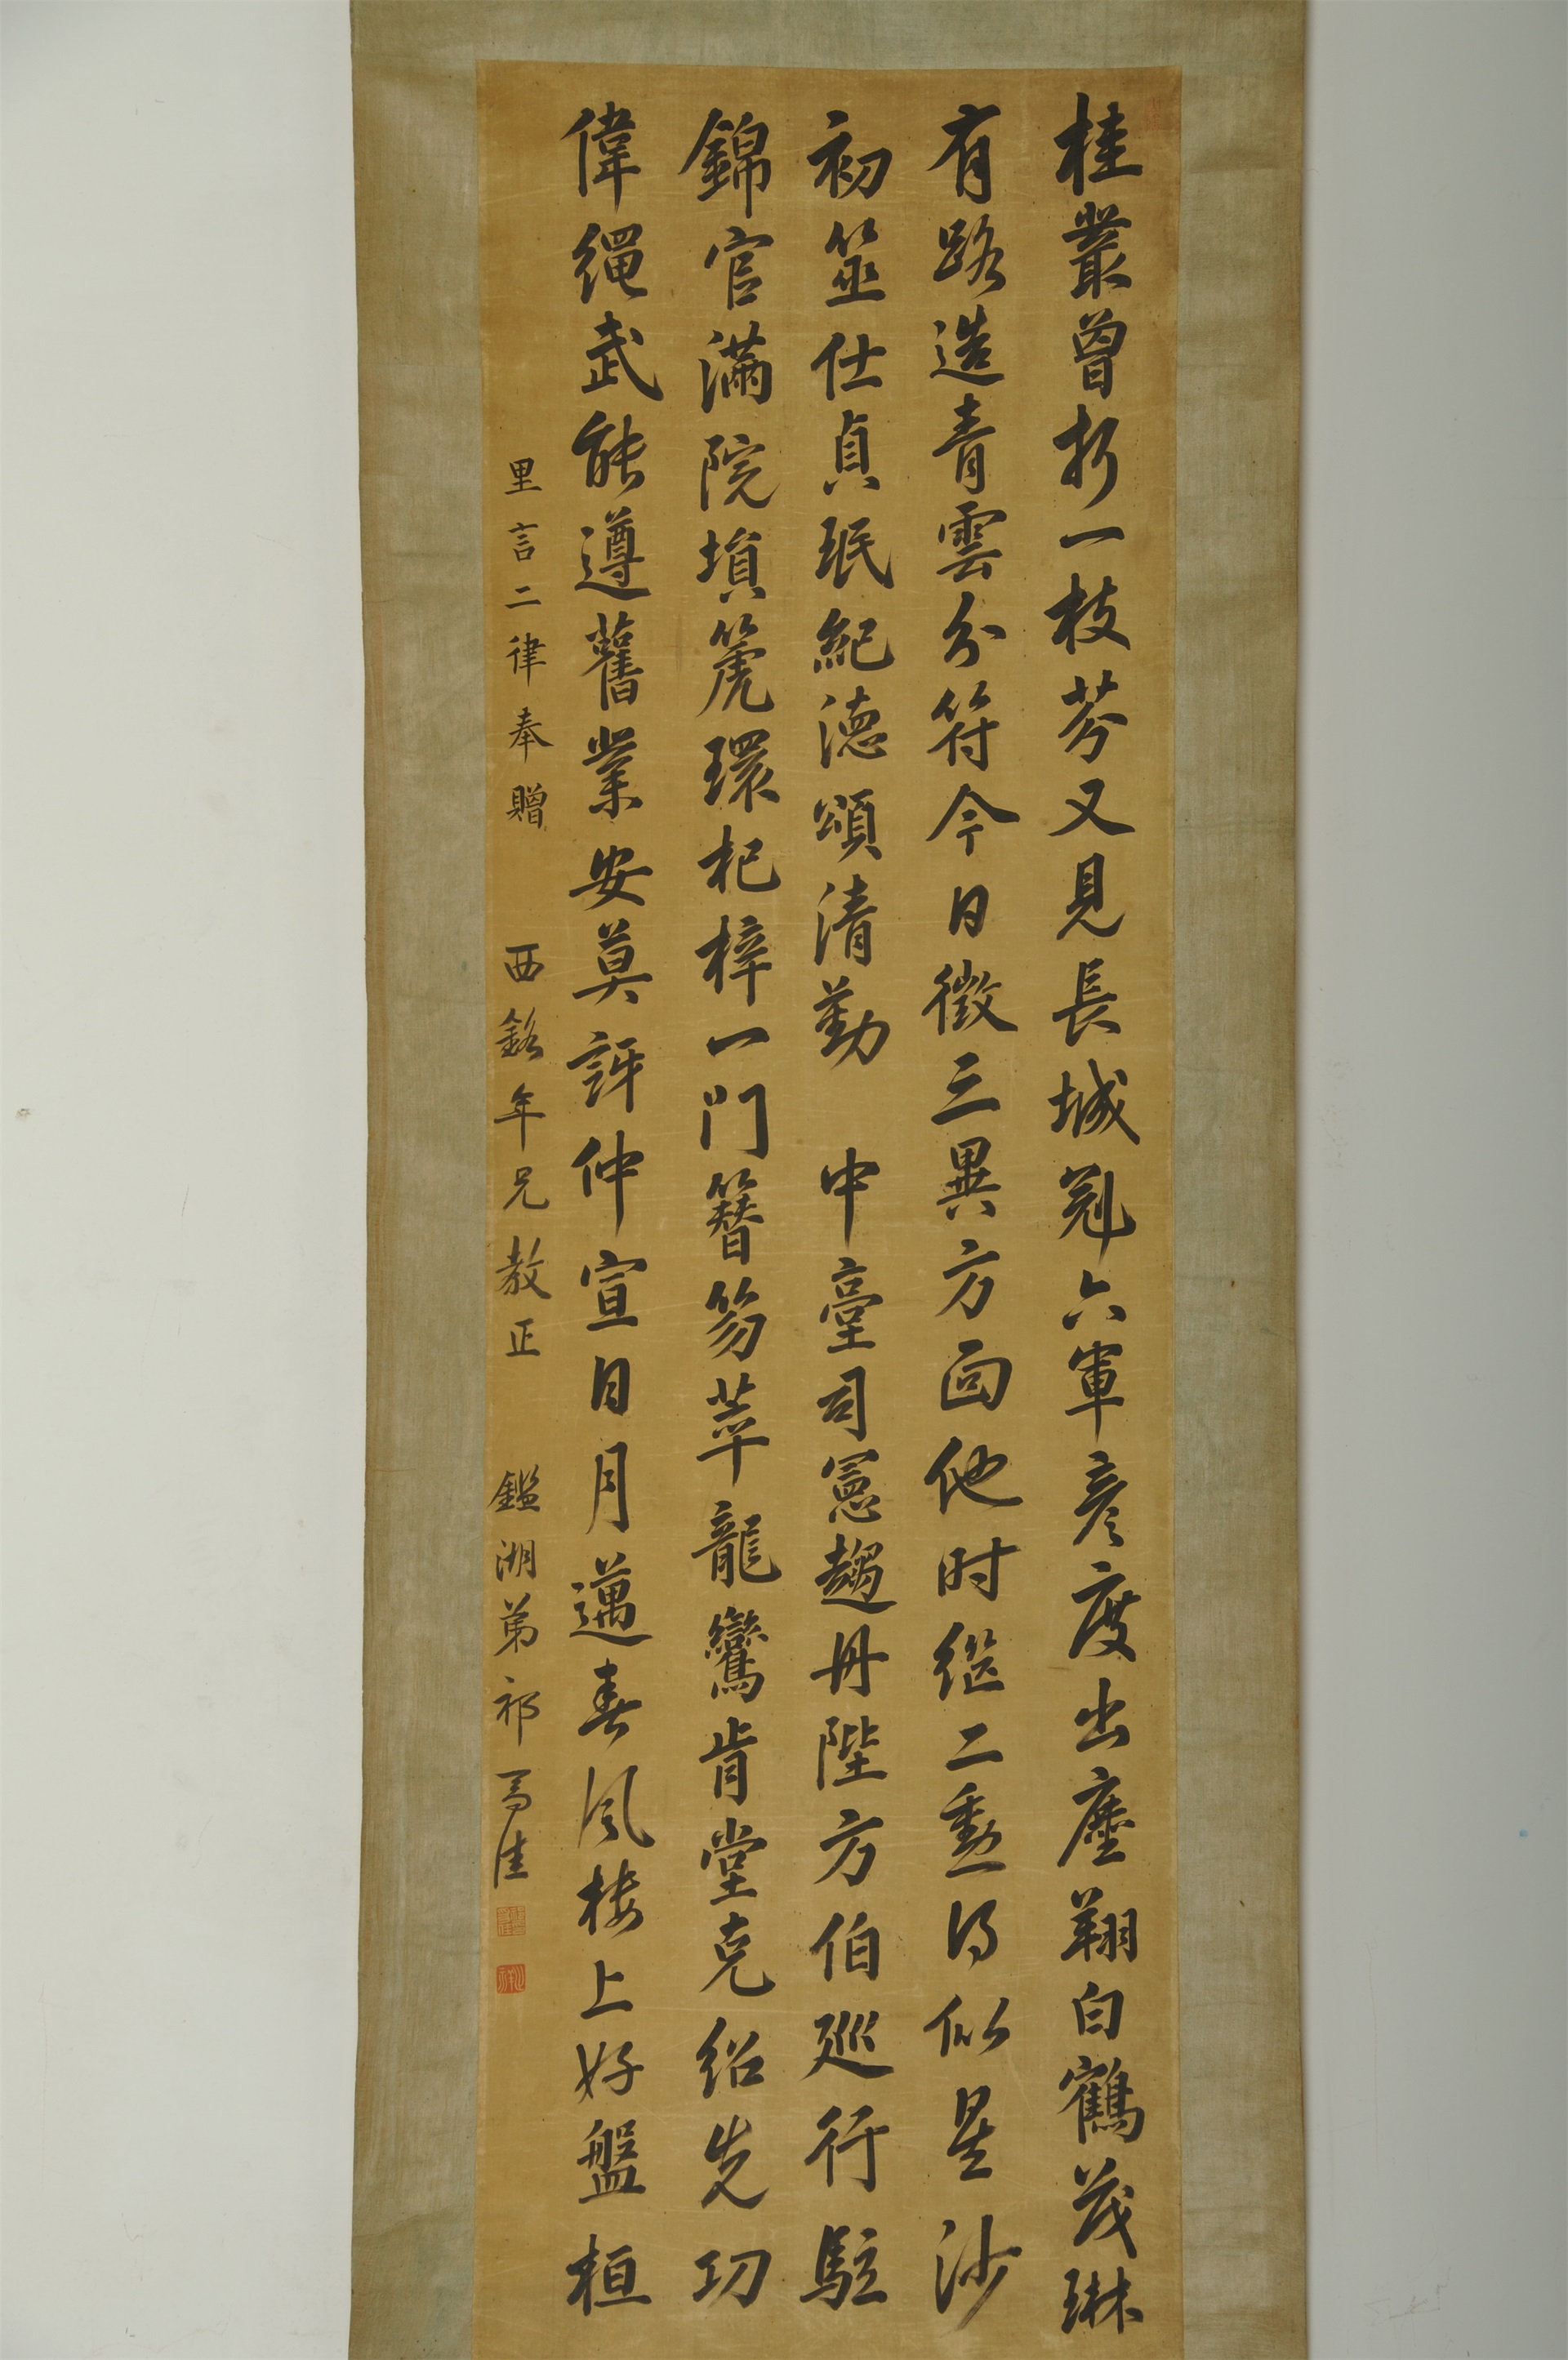 桂叢曾折一枝芬又見長城冠六軍彥度出塵翔白鶴茂琳
有路造青雲分符今日徵三異方面他时继二惠得似星沙
初筮仕貞珉紀德頌清勤　中臺司憲趨丹陛方伯巡行駐
錦官滿院埙箎環杞梓一門簪笏萃龍鸞肯堂克紹先功
偉繩武能遵舊業安莫訝仲宣日月邁春风楼上好盤桓
里言二律奉贈　西銘年兄教正　鑑湖弟祁